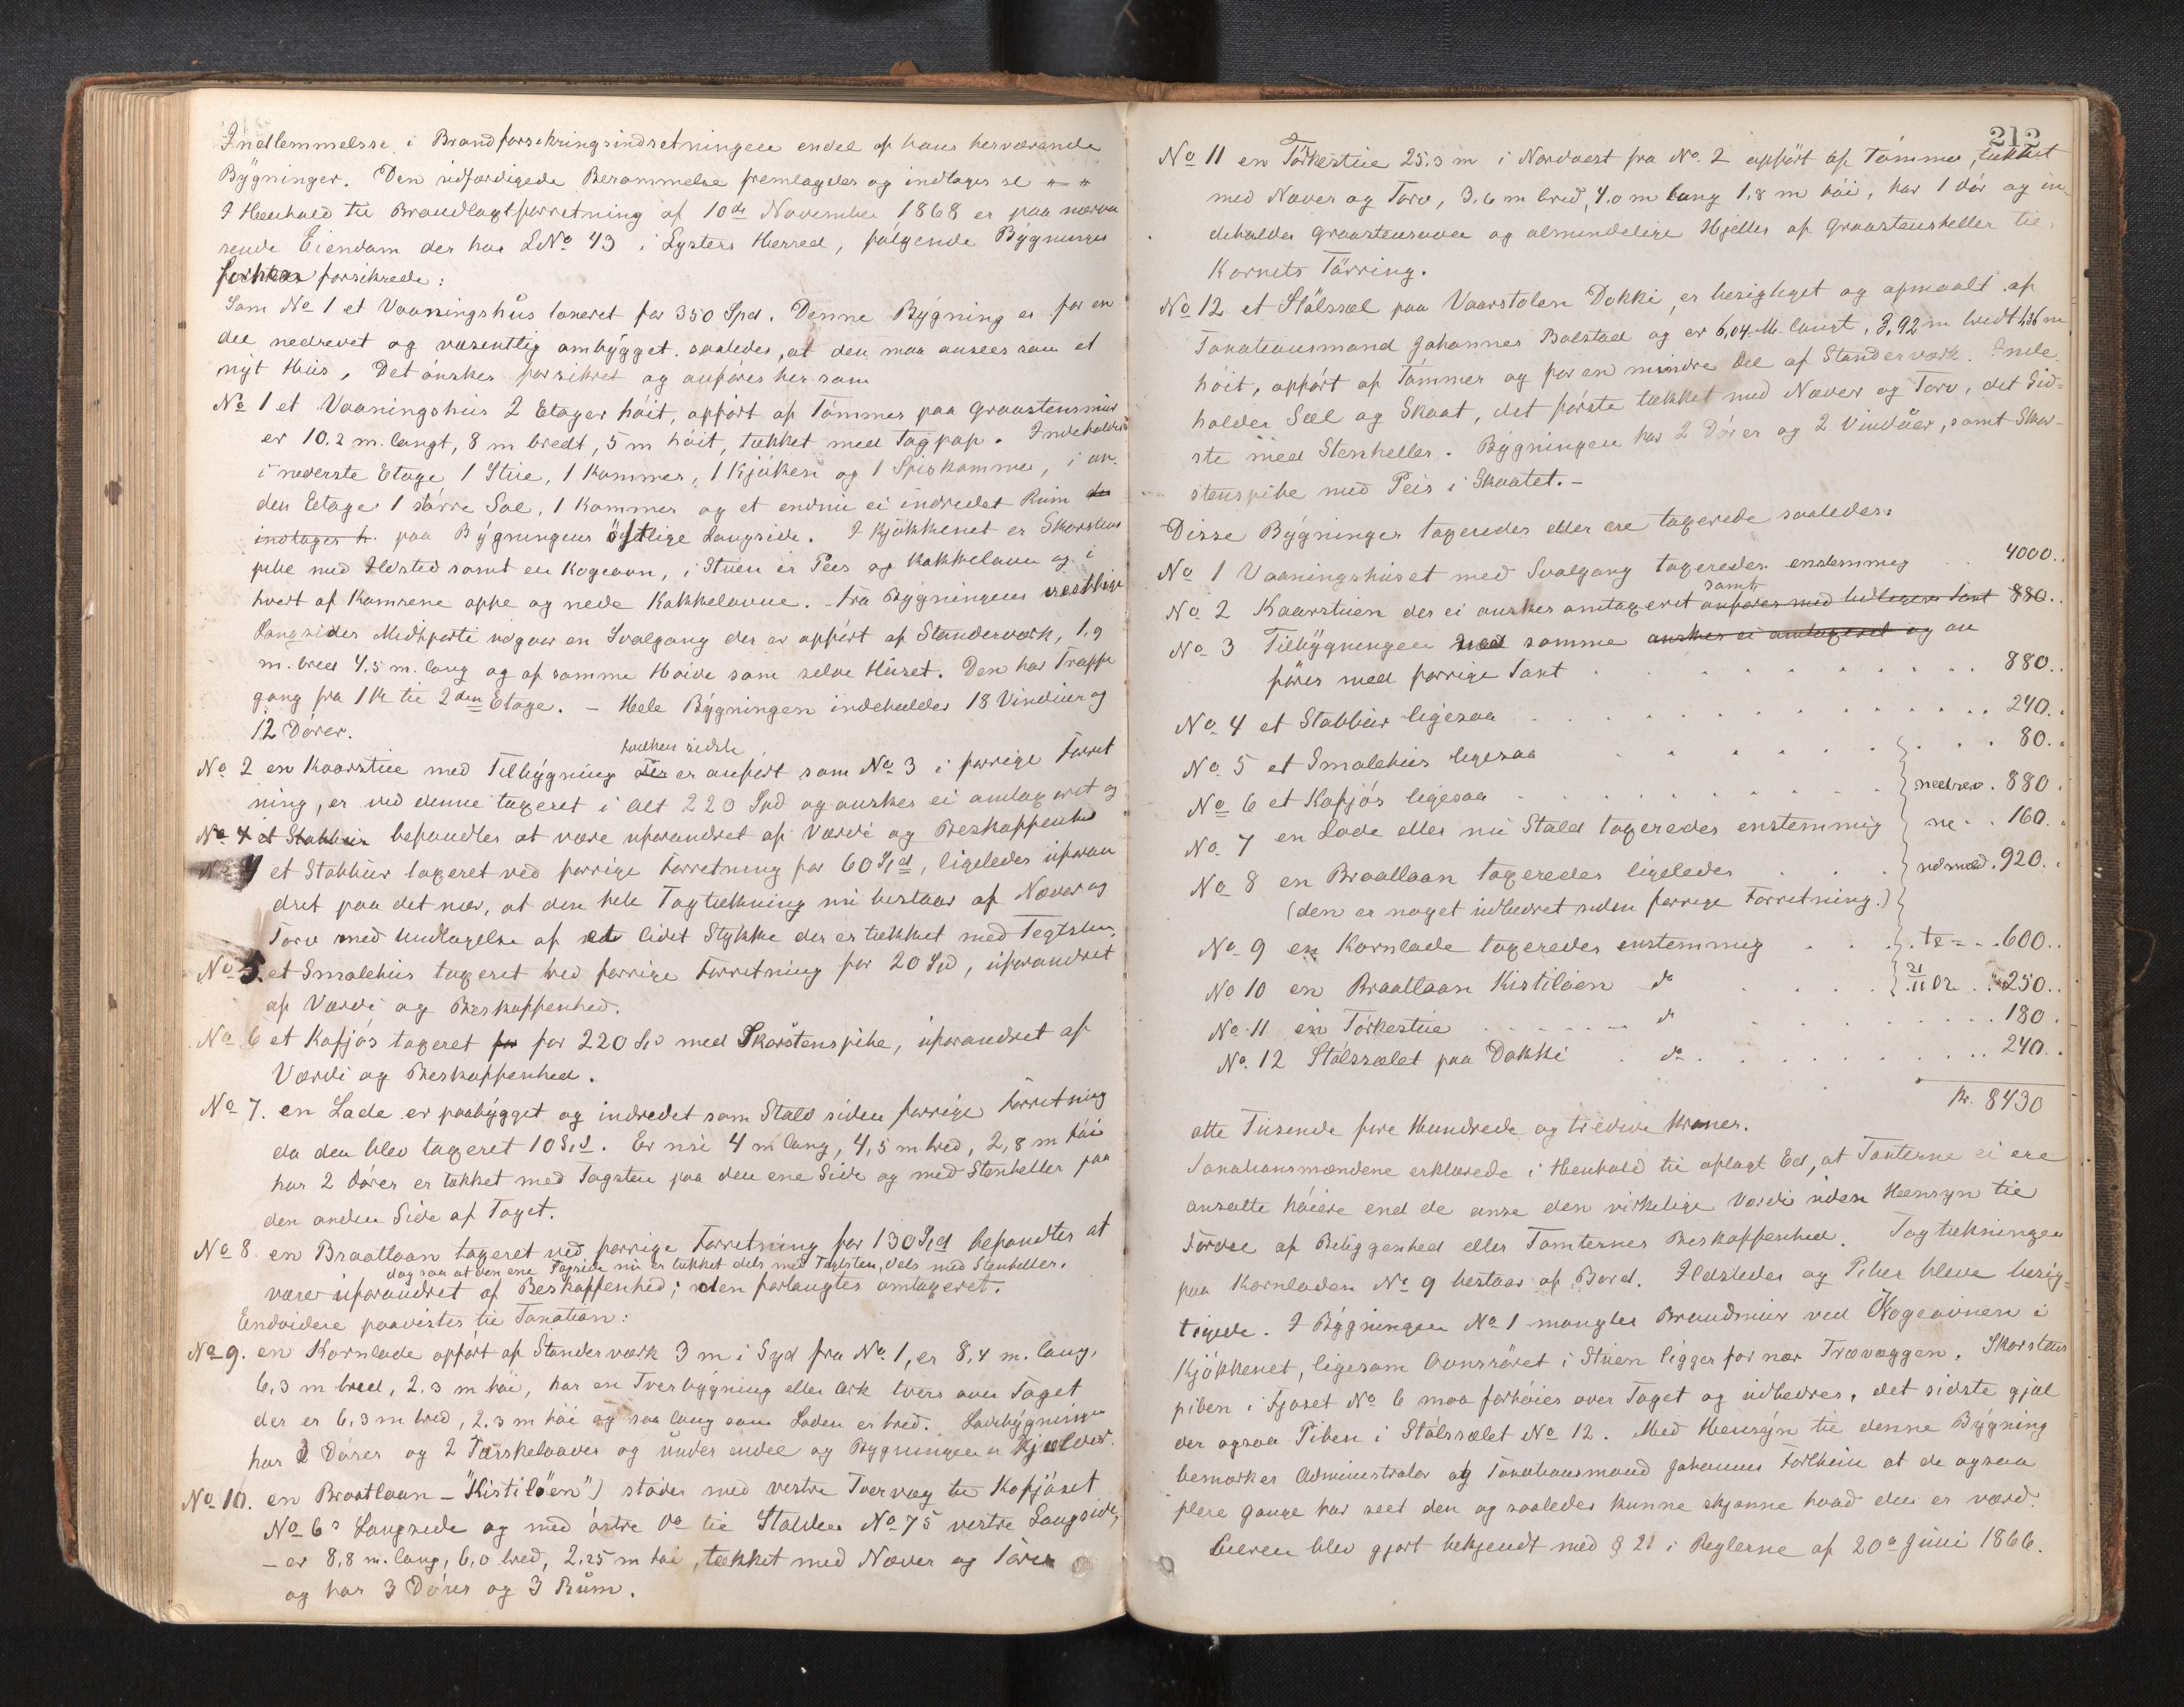 Indlemmelse i Brandforsikringsindretningen endel af hans herværende
Bygninger. Den udfærdigede Berammelse fremlagdes og indtages sl " "
I Henhold til Brandtaxtforretning af 10de November 1868 er paa nærvæ
rende Eiendom der har LNo 43 i Lysters Herred, følgende Bygninger
forsikrede:
Som No 1 et Vaaningshus taxeret for 350 Spd. Denne Bygning er for en
del nedrevet og væsentlig ombygget, saaledes, at den maa ansees som et
nyt Hus, Det ønskes forsikret og anføres her som
No 1 et Vaaningshus 2 Etager høit, opført af Tømmer paa Graastensmur
er 10.2 m. langt, 8 m bredt, 5 m høit, tækket med Tagpap. Indeholder
i nederste Etage 1 Stue, 1 Kammer, 1 Kjøken og 1 Spiskammer, i an-
den Etage 1 større Sal, 1 Kammer og et endnu ei indredet Rum der
indtages h. paa Bygningens østlige Langside. I Kjøkkenet er Skorstens
pibe med Ildsted samt en Kogeovn, i Stuen er Peis og Kakkelovn og i
hvert af Kamrene oppe og nede Kakkelovne. - Fra Bygningens vestlige
Langsides Midtparti udgaar en Svalgang der er opført af Standerværk, 1.9
m. bred 4.5 m. lang og af samme Høide som selve Huset. Den har Trappe
gang fra 1ste til 2den Etage. - Hele Bygningen indeholder 18 Vinduer og
12 Dører.
hvilken sidste
No 2 en Kaarstue med Tilbygning der er anført som No 3 i forrige Forret
ning, er ved denne taxeret i alt 220 Spd og ønskes ei omtaxeret og
No 4 et Stabbur befandtes at være uforandret af Værdi og Beskaffenhed
No 4 et Stabbur taxeret ved forrige Forretning for 60 Spd, ligeledes uforan
dret paa det nær, at den hele Tagtækning nu bestaar af Næver og
Torv med Undtagelse af et lidet Stykke der er tækket med Tegtsten.
No 5. et Smalehus taxeret ved forrige Forretning for 20 Spd, uforandret
af Værdi og Beskaffenhed.
No 6 et Kofjøs taxeret for for 220 Spd med Skorstenspibe, uforandret af
Værdi og Beskaffenhed.
No 7. en Lade er paabygget og indredet som Stald siden forrige Forretning
da den blev taxeret 10 Spd. Er nu 4 m lang, 4,5 m bred, 2,8 m høi
har 2 Dører er tækket med Tagsten paa den ene Side og med Stenheller paa
den anden Side af Taget.
No 8. en Braatlaan taxeret ved forrige Forretning for 130 Spd befandtes at
dog saa at den ene Tagside nu er tækket dels med Tegtsten, dels med Stenheller.
være uforandret af Beskaffenhed; den forlangtes omtaxeret.
Endvidere paavistes til Taxation:
No 9. en Kornlade opført af Standerværk 3 m i Syd fra No 1, er 8,4 m. lang,
6.3 m bred, 2.3 m høi, har en Tverbygning eller Ark tvers over Taget
der er 6.3 m bred, 2.3 m høi og saa lang som Laden er bred. Ladebygningen
har 2 Dører og 2 Tærskelaaver og under endel og Bygningen er Kjælder.
No 10. en Braatlaan - "Kistiløen") støder med vestre Tvervæg til Kofjøset
No 6s Langside og med østre Do til Stalden No 7s vestre Langside,
- er 8,8 m. lang, 6,0 bred, 2.25 m høi, tækket med Næver og Torv
og har 3 Dører og 3 Rum.
212
No 11 en Tørkestue 25.3 m i Nordvest fra No. 2 opført af Tømmer, tækket
med Næver og Torv, 3.6 m bred, 4.0 m lang 1.8 m høi, har 1 dør og in-
deholder Graastensovn og almindelige Hjeller af Graastensheller til
Kornets Tørring.
No 12 et Stølssæl paa Vaarstølen Dokki, er besigtiget og opmaalt af
Taxationsmand Johannes Bolstad og er 6,04 M. langt, 3,92 m bredt 1,36 m
høit, opført af Tømmer og for en mindre Del af Standerværk. Inde-
holder Sæl og Skaat, det første tækket med Næver og Torv, det Sid-
ste med Stenheller. Bygningen har 2 Dører og 2 Vinduer, samt Skor-
stenspibe med Peis i Skaatet. -
Disse Bygninger taxeredes eller ere taxerede saaledes:
No 1 Vaaningshuset med Svalgang taxeredes enstemmig . . 4000..
samt
No 2 Kaarstuen der ei ønskes omtaxeret anføres med tidligere Taxt 880..
No 3 Tilbygningen med samme ønskes ei omtaxeret og an
føres med forrige Taxt . . . . . . . . 880..
No 4 et Stabbur ligesaa . . . . . . . . 240..
No 5 et Smalehus ligesaa . . . . . . . . 80..
No 6 et Kofjøs ligesaa . . . . . . . nedrev . 880.
No 7 en Lade eller nu Stald taxeredes enstemmig ne . . 160.
No 8 en Braatlaan taxeredes ligeledes . . . udmeld . 920..
(den er noget udbedret siden forrige Forretning.)
No 9 en Kornlade taxeredes enstemmig . . . te - . . 600..
No 10 en Braatlaan Kistiløen do . . . . 21/11 02 . . 250..
No 11 en Tørkestue . . . . do . . . . . . 180.
No. 12 Stølssælet paa Dokki . do . . . . . . 240..
Kr. 8430
otte Tusende fire Hundrede og tredive Kroner.
Taxationsmændene erklærede i Henhold til aflagt Ed, at Taxterne ei ere
ansatte høiere end de anse den virkelige Værdi uden Hensyn til
Fordel af Beliggenhed eller Tomternes Beskaffenhed. Tagtækningen
paa Kornladen No 9 bestaar af Bord. Ildsteder og Piber bleve besig-
tigede. I Bygningen No 1 mangler Brandmur ved Kogeovnen i
Kjøkkenet, ligesom Ovnsrøret i Stuen ligger for nær Trævæggen. Skorstens
piben i Fjøset No 6 maa forhøies over Taget og udbedres, det sidste gjæl
der ogsaa Piben i Stølssælet No 12. Med Hensyn til denne Bygning
bemærker Administrator og Taxationsmand Johannes Forthun at de ogsaa
flere Gange har seet den og saaledes kunne skjønne hvad den er værd.
Eieren blev gjort bekjendt med § 21 i Reglerne af 20de Juni 1866.